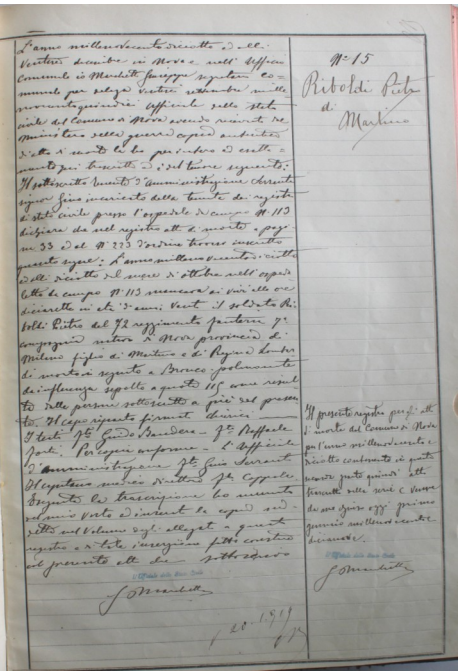 L'anno millenovecento diciotto ed alli
ventitre dicembre in Nova e nell'Ufficio
Comunale io Marchetti Giuseppe segretario co=
munale per delega ventisei settembre mille
novecentoquindici ufficiale dello stato
civile del Comune di Nova avendo ricevuto dal
Ministero della guerra copia autentica
d'atto di morte la ho per intero ed esatta=
mente qui trascritto ed è del tenore seguente:
Il sottoscritto Tenente d'amministrazione Serrente
signor Gino incaricato della tenuta dei registri
di stato civile presso l'ospedale da campo N. 113
dichiara che nel registro atti di morte a pagi=
na 33 ed al N. 223 d'ordine trovasi inscritto
quanto segue: L'anno millenovecentodiciotto
ed alli diciotto del mese di ottobre nell'ospeda
letto da campo N. 113 mancava ai vivi alle ore
diciassette in età d'anni venti il soldato Ri
boldi Pietro del 72 reggimento fanteria 7a
compagnia nativo di Nova provincia di
Milano figlio di Martino e di Regina
di morto in seguito a Bronco polmonite
da influenza sepolto a come risul
ta dalle persone sottoscritte a piè del presen
te. Il capo reparto firmato
I testi fto Guido Bandera - fto Raffaele
forte. Per copia conforme - L'Ufficiale
d'amministrazione fto Gino Serrente
Il capitano medico direttore fto Coppola.
Eseguita la trascrizione ho munito
del mio visto ed inserito la copia sud=
detta nel volume degli allegati a questo
registro e di tale inserzione feci constare
col presente atto che sottoscrivo
L'Ufficiale dello Stato Civile
G Marchetti
N° 15
Riboldi Pietro
di
Martino
Il presente registro per gli atti
di morte del Comune di Nova
per l'anno millenovecento e
diciotto contenente in questa
seconda parte quindici atti
trascritti nella serie C venne
da me chiuso oggi primo
gennaio millenovecento e
diciannove.
L'Ufficiale dello Stato Civile
G Marchetti